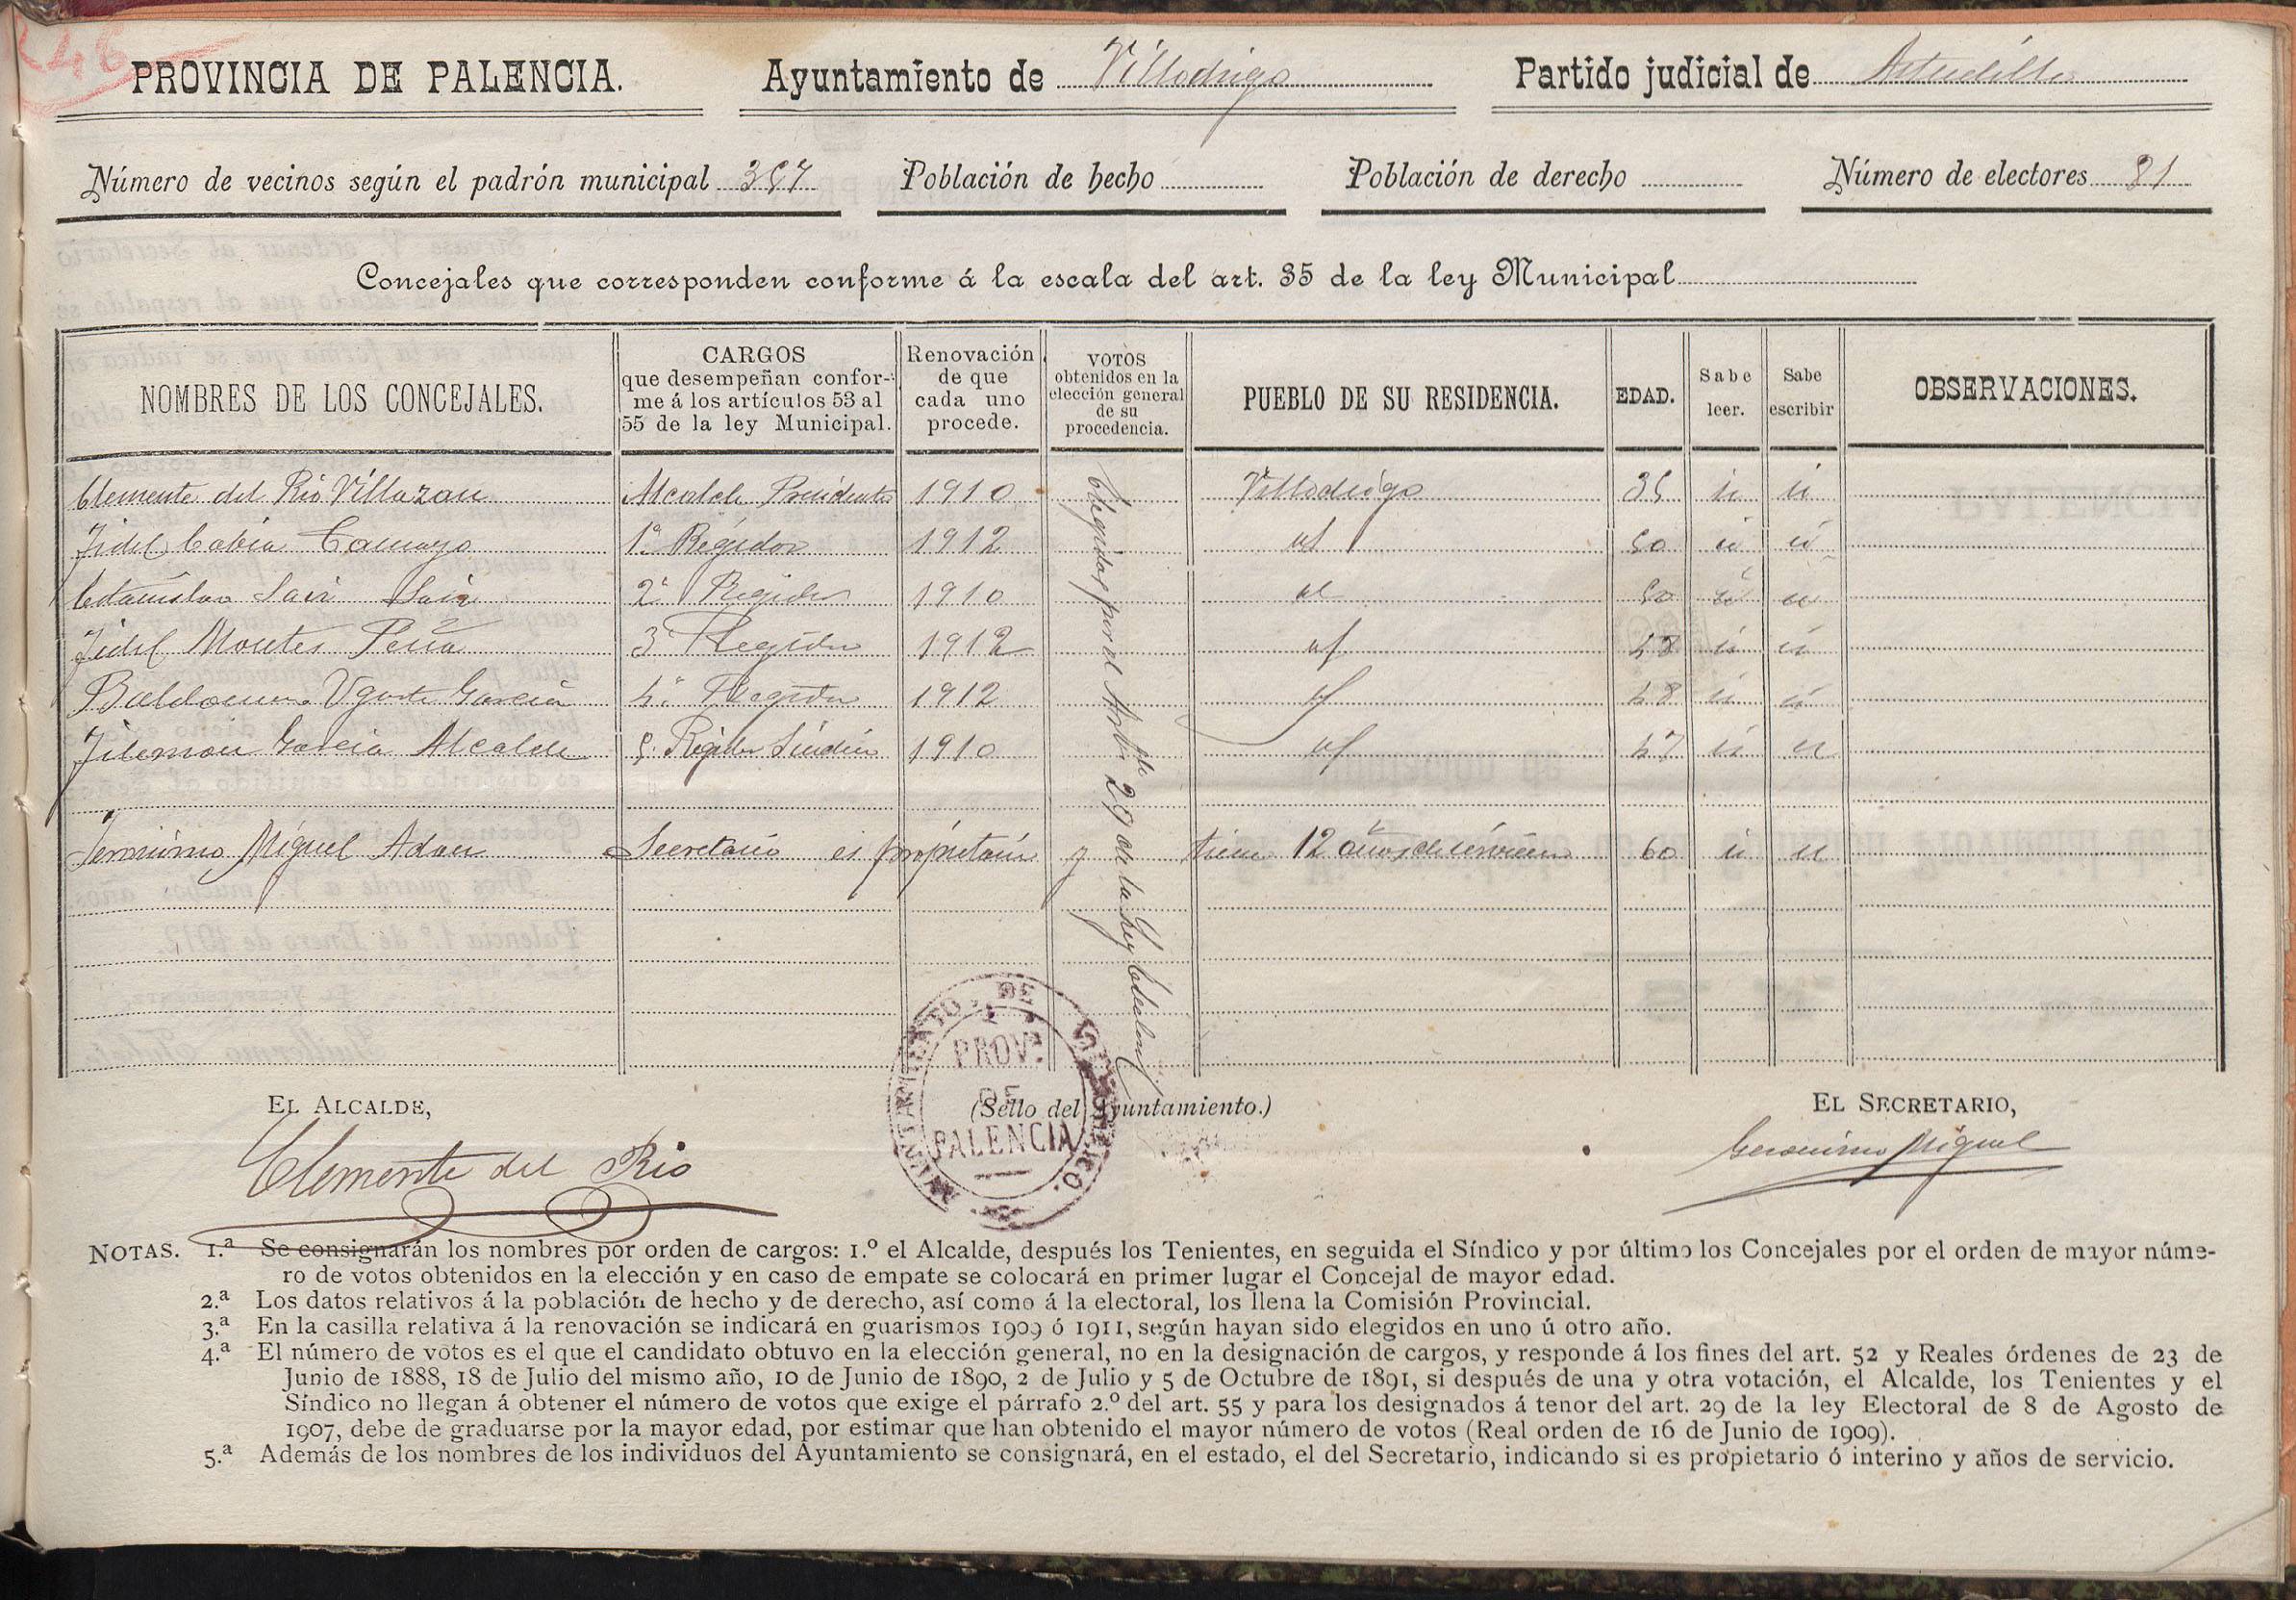 246
PROVINCIA DE PALENCIA. Ayuntamiento de Villodrigo Partido judicial de Astudillo
Número de vecinos según el padrón municipal 357 Población de hecho Población de derecho Número de electores 81
Concejales que corresponden conforme á la escala del art. 35 de la ley Municipal
NOMBRES DE LOS CONCEJALES. CARGOS que desempeñan conforme á los artículos 53 al 55 de la ley Municipal. Renovación de que cada uno procede. VOTOS obtenidos en la elección general de su procedencia. PUEBLO DE SU RESIDENCIA. EDAD. Sabe leer. Sabe escribir OBSERVACIONES.
Clemente del Rio Villazan Alcalde Presidente 1910 Villodrigo 35 si si
Fidel Cabia Tamayo 1º Regidor 1912 id 50 si si
Estanislao Saiz Saiz 2º Regidor 1910 id 50 si si
Fidel Montes Peña 3º Regidor 1912 id 48 si si
Baldomero Ugarte Garcia 4º Regidor 1912 id 48 si si
Filemon Garcia Alcalde 5º Regidor Sindico 1910 id 47 si si
Elegidos por el Artº 29 de la Ley Electoral
Jeronimo Miguel Adan Secretario es propietario y tiene 12 años de servicio 60 si si
EL ALCALDE, (Sello del Ayuntamiento.) EL SECRETARIO,
AYUNTAMIENTO DE VILLODRIGO.
PROV.ª DE PALENCIA
Clemente del Rio Geronimo Miguel
NOTAS. 1.ª Se consignarán los nombres por orden de cargos: 1.º el Alcalde, después los Tenientes, en seguida el Síndico y por último los Concejales por el orden de mayor núme-
ro de votos obtenidos en la elección y en caso de empate se colocará en primer lugar el Concejal de mayor edad.
2.ª Los datos relativos á la población de hecho y de derecho, así como á la electoral, los llena la Comisión Provincial.
3.ª En la casilla relativa á la renovación se indicará en guarismos 1909 ó 1911, según hayan sido elegidos en uno ú otro año.
4.ª El número de votos es el que el candidato obtuvo en la elección general, no en la designación de cargos, y responde á los fines del art. 52 y Reales órdenes de 23 de
Junio de 1888, 18 de Julio del mismo año, 10 de Junio de 1890, 2 de Julio y 5 de Octubre de 1891, si después de una y otra votación, el Alcalde, los Tenientes y el
Síndico no llegan á obtener el número de votos que exige el párrafo 2.º del art. 55 y para los designados á tenor del art. 29 de la ley Electoral de 8 de Agosto de
1907, debe de graduarse por la mayor edad, por estimar que han obtenido el mayor número de votos (Real orden de 16 de Junio de 1909).
5.ª Además de los nombres de los individuos del Ayuntamiento se consignará, en el estado, el del Secretario, indicando si es propietario ó interino y años de servicio.